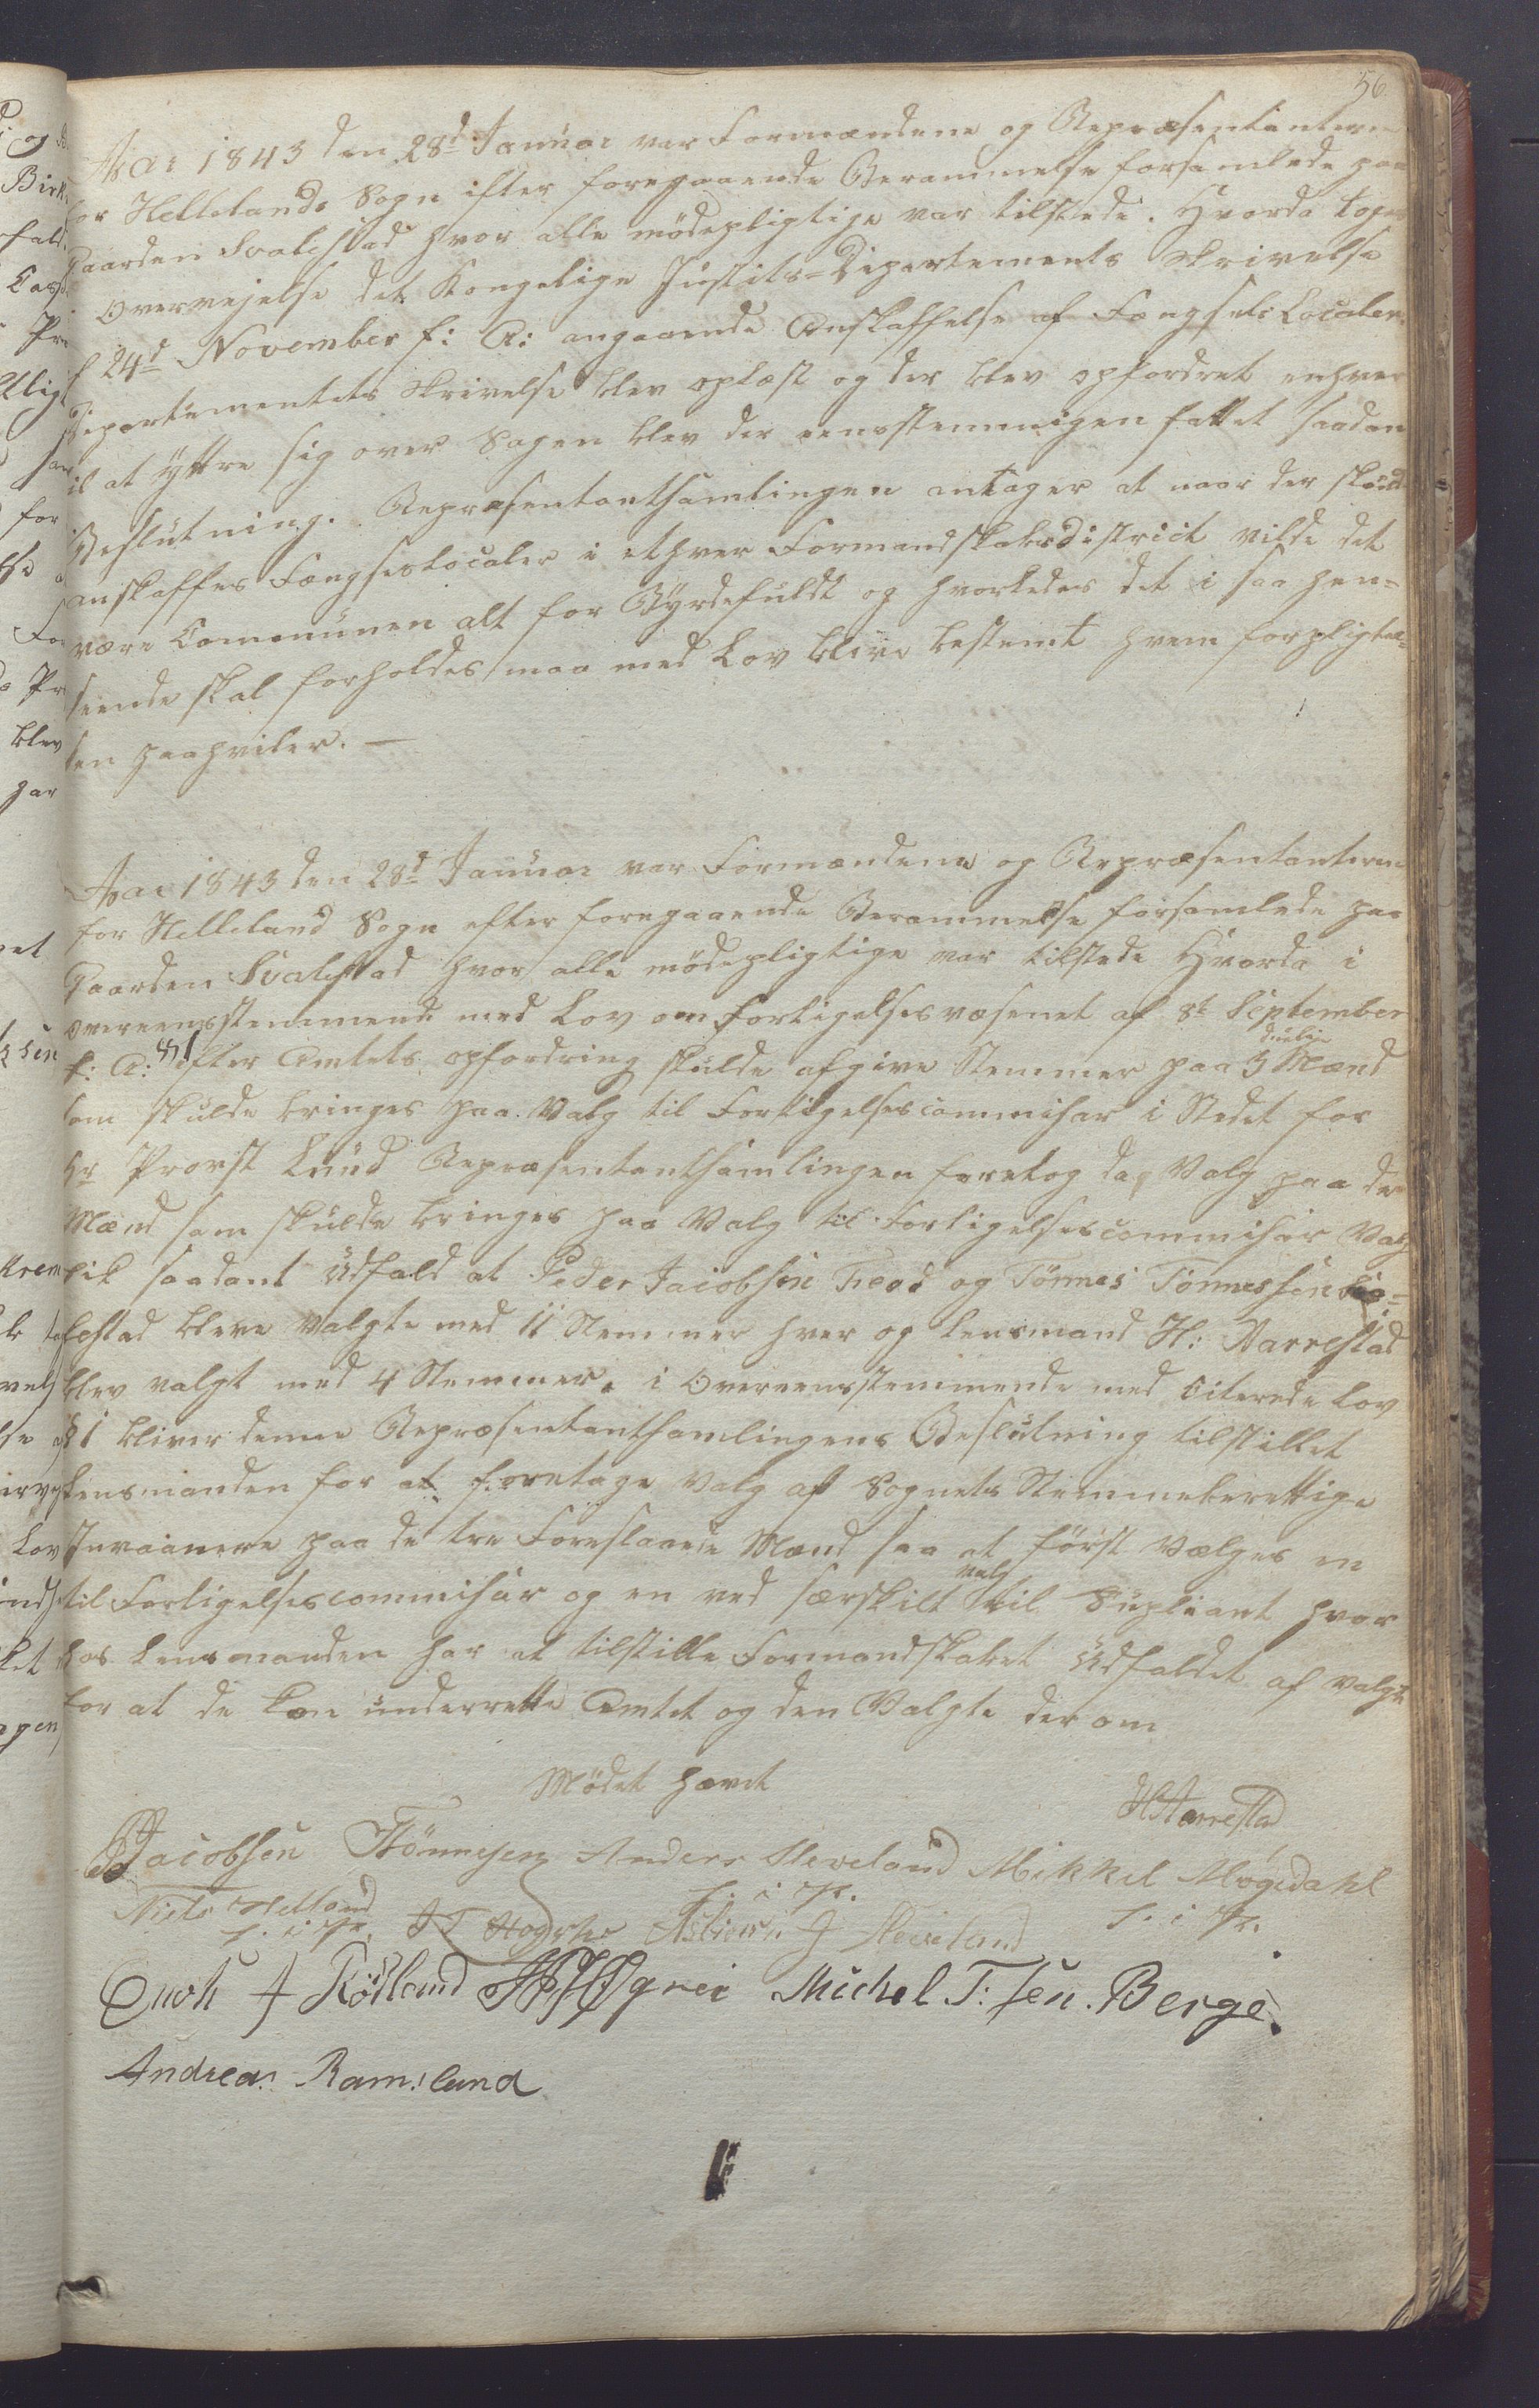 56
Aar 1843 den 28d Januar var Formændene og Repræsentanterne
for Hellelands Sogn efter foregaaende Berammelse forsamlede paa
Gaarden Svalestad hvor alle mødepligtige var tilstede. Hvorda toges
i Overvejelse det Kongelige Justits-Departements Skrivelse
af 24d November f: A: angaaende Anskaffelse af Fængsels Localer.
Departementets Skrivelse blev oplæst og der blev opfordret enhver
til at yttre sig over Sagen blev der eensstemmigen fattet saadan
Beslutning. Repræsentantsamlingen antager at naar der skulde
anskaffes Fængselslocaler i ethvert Formandskabsdistrict vilde det
være Communen alt for Byrdefuldt og hvorledes det i saa hen-
seende skal forholdes maa med Lov blive bestemt hvem forpligtel-
sen paahviler. —
Aar 1843 den 28d Januar var Formændene og Repræsentanterne
for Helleland Sogn efter foregaaende Berammelse forsamlede paa
Gaarden Svalestad hvor alle mødepligtige var tilstede Hvorda i
overeensstemmende med Lov om Forligelsesvæsenet af 8t September
f: A: §1 efter Amtets opfordring skulde afgive Stemmer paa 3 duelige Mænd
som skulde bringes paa Valg til Forligelsescommisær i Stedet for
Hr Provst Lund Repræsentantsamlingen foretog da Valg paa de
Mænd som skulde bringes paa Valg til Forligelsescommisær Valg
fik saadant Udfald at Peder Jacobsen Tveod og Tönnes Tönnessen Sva-
lestad bleve Valgte med 11 Stemmer hver og Lensmand H: Aarrestad
blev valgt med 4 Stemmer. i Overeensstemmende med Citerede Lov
§1 bliver denne Repræsentantsamlingens Beslutning tilstillet
Lensmanden for at foretage Valg af Sognets Stemmeberettige
Invaanere paa de tre Foreslaaede Mænd saa at først Vælges en
til Forligelsescommisær og en ved særskilt valg til Supliant hvor
hos Lensmanden har at tilstille Formandskabet Udfaldet af Valget
for at de kan underrette Amtet og den Valgte derom
Mödet hævet
H Aarrestad
P Jacobsen T Tönnesen Anders Sleveland Mikkel Møgedahl
Niels Helland f. i P. f. i P.
f. i P. Asbiørn J Sleveland
Enok J Röisland Øgrei Michel T: sen. Berge
Andreas Ramsland